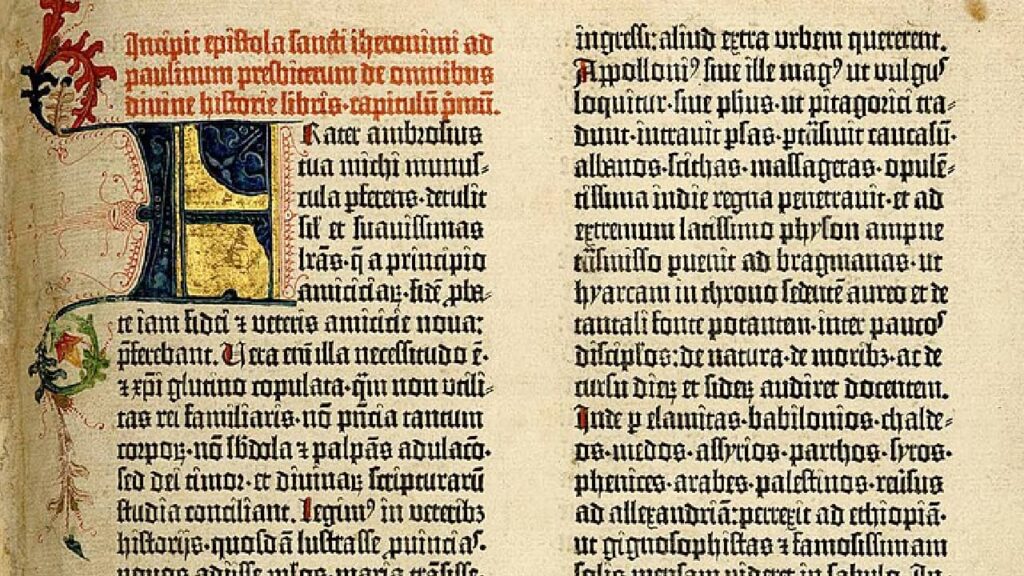 Incipit epistola sancti iheronimi ad
paulinum presbiterum de omnibus
divine historie libris·capitulū p̄mū.
Frater ambrosius
tua michi munus-
cula p̄ferens·detulit
sil̄ et suavissimas
lr̄as·q̄ a principio
amiciciaꝝ·fidē ꝓba-
te iam fidei ⁊ veteris amicicie nova:
p̄ferebant. Vera em̄ illa necessitudo ē·
⁊ xp̄i glutino copulata·qm̄ non utili-
tas rei familiaris·nō pn̄cia tantum
corpoꝝ·nō sb̄dola ⁊ palpās adulacō·
sed dei timor·et divinaꝝ scripturarū
studia conciliant. Legimꝰ in veteribꝫ
historijs·quosdā lustrasse ꝓvincias·
novos adijsse pl̄os·maria trāsisse·
ingressi: aliud extra urbem quererent.
Appolloniꝰ sive ille magꝰ ut vulgus
loquitur·sive ph̄us·ut pitagorici tra-
dunt·intravit ꝑsas·ꝑtrāsivit caucasū·
albanos·scithas·massagetas·opulē-
tissima indie regna penetravit·et ad
extremum latissimo physon ampne
trāsmisso ꝑvenit ad bragmanas·ut
hyarcam in throno sedentē aureo et de
tantali fonte potantem·inter paucos
discipl̄os: de natura·de moribꝫ·ac de
cursu dieꝝ et sideꝝ audiret docentem.
Inde ꝑ elamitas·babilonios·chalde-
os·medos·assyrios·parthos·syros·
phenices·arabes·palestinos·reūsus
ad allexandriā: perrexit ad ethiopiā·
ut gignosophistas ⁊ famosissimam
solis mensam videret in sabulo. In